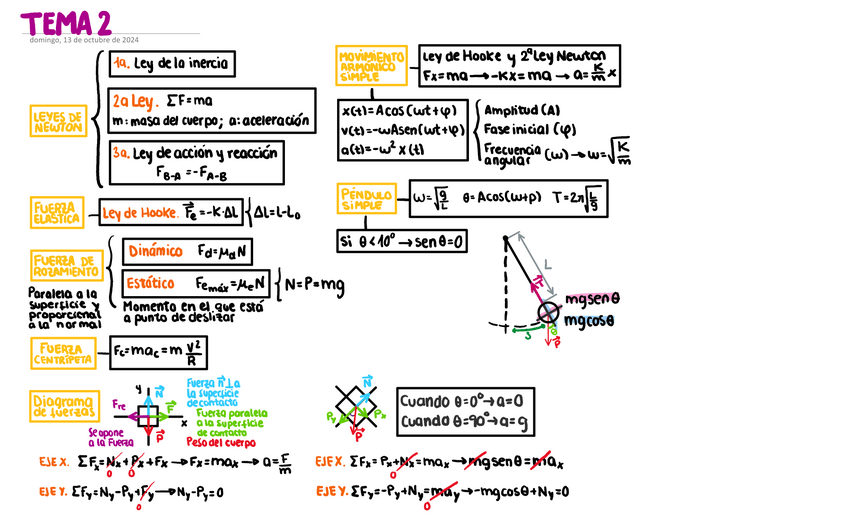 TEMA 2
domingo, 13 de octubre de 2024
LEYES DE
NEWTON
1a. Ley de la inercia
2a Ley. ΣF=ma
m: masa del cuerpo; a: aceleración
3a. Ley de acción y reacción
F_B-A = -F_A-B
FUERZA
ELÁSTICA
Ley de Hooke. F⃗e=-K·ΔL
ΔL=L-L₀
FUERZA DE
ROZAMIENTO
Paralela a la
superficie y
proporcional
a la normal
Dinámico Fd=μdN
Estático Femáx=μeN
N=P=mg
Momento en el que está
a punto de deslizar
FUERZA
CENTRÍPETA
Fc=mac=m v²/R
Diagrama
de fuerzas
y
N⃗
Fre
F⃗
x
P⃗
Se opone
a la Fuerza
Fuerza n⃗ ⊥ a
la superficie
de contacto
Fuerza paralela
a la superficie
de contacto
Peso del cuerpo
EJE X. ΣFx=Nx+Px+Fx→Fx=max→a=F/m
0 0
EJE Y. ΣFy=Ny-Py+Fy→Ny-Py=0
0
MOVIMIENTO
ARMÓNICO
SIMPLE
Ley de Hooke y 2ªLey Newton
Fx=ma→-Kx=ma→a=K/m x
x(t)=Acos(ωt+φ)
v(t)=-ωAsen(ωt+φ)
a(t)=-ω²x(t)
Amplitud (A)
Fase inicial (φ)
Frecuencia
angular (ω)→ω=√K/m
PÉNDULO
SIMPLE
ω=√g/L θ=Acos(ω+p) T=2π√L/g
Si θ<10°→senθ=0
L
T⃗
mgsenθ
mgcosθ
θ
s
P⃗
N⃗
Py
Px
P⃗
Cuando θ=0°→a=0
Cuando θ=90°→a=g
EJE X. ΣFx=Px+Nx=max→mgsenθ=max
0
EJE Y. ΣFy=-Py+Ny=may→-mgcosθ+Ny=0
0